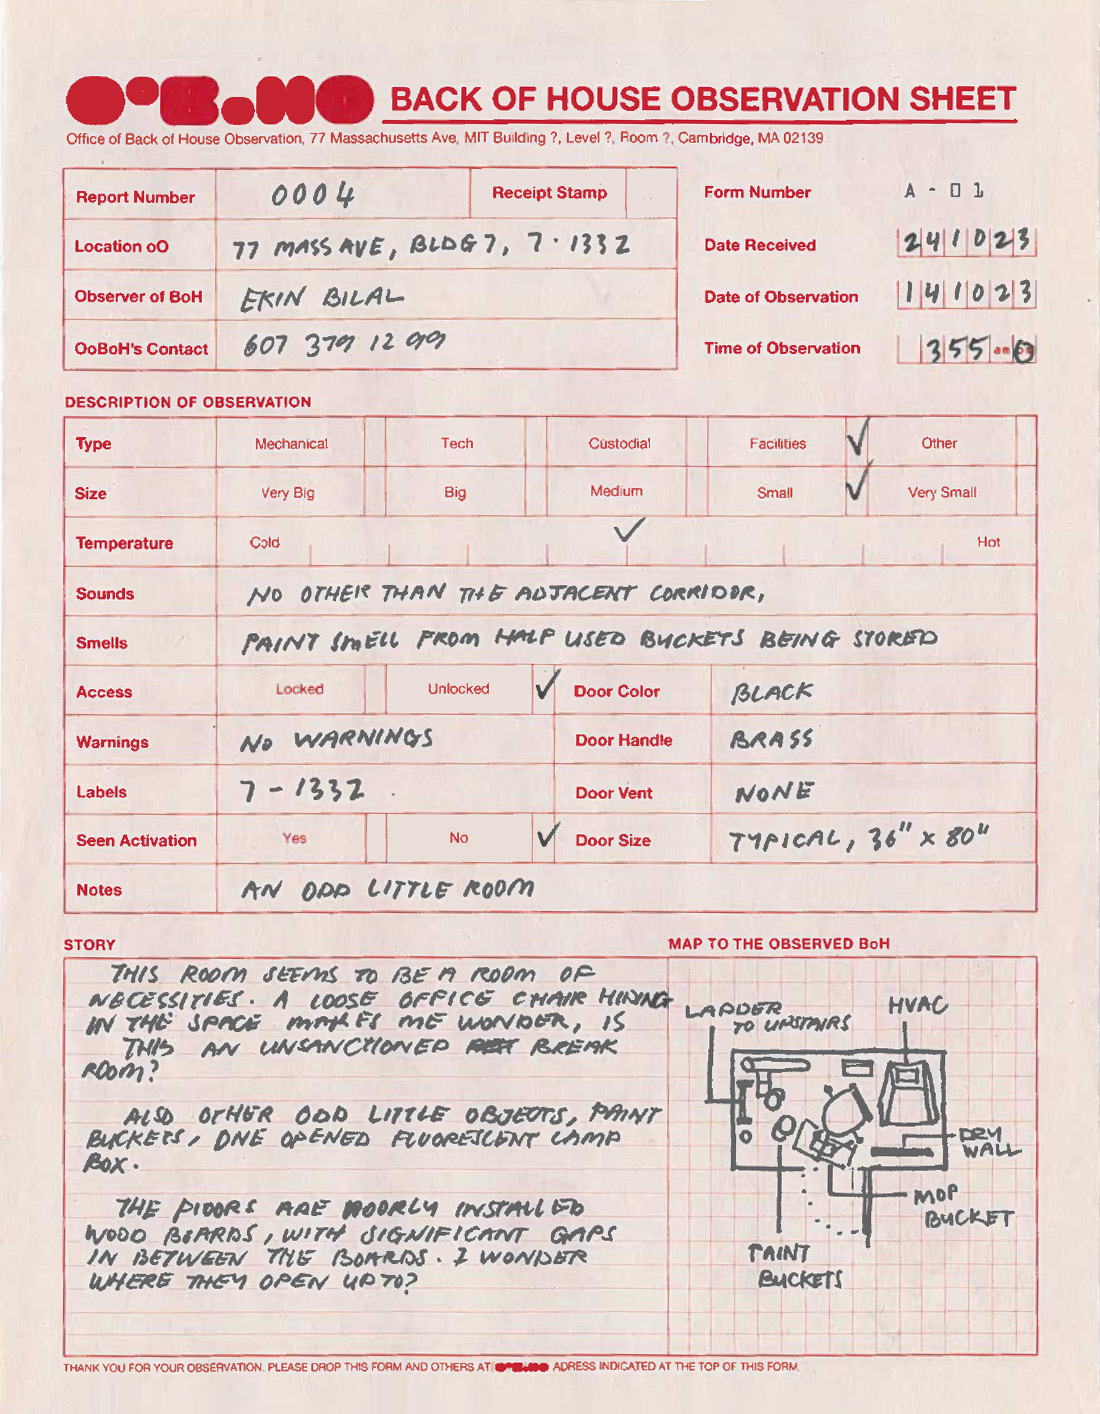 OoBoHO BACK OF HOUSE OBSERVATION SHEET
Office of Back of House Observation, 77 Massachusetts Ave, MIT Building ?, Level ?, Room ?, Cambridge, MA 02139
Report Number 0004 Receipt Stamp
Form Number A - 01
Location oO 77 MASS AVE, BLDG 7, 7 · 1332
Date Received 241023
Observer of BoH EKIN BILAL
Date of Observation 141023
OoBoH's Contact 607 379 1299
Time of Observation 355 am
DESCRIPTION OF OBSERVATION
Type Mechanical Tech Custodial Facilities ✓ Other
Size Very Big Big Medium Small ✓ Very Small
Temperature Cold ✓ Hot
Sounds NO OTHER THAN THE ADJACENT CORRIDOR,
Smells PAINT SMELL FROM HALF USED BUCKETS BEING STORED
Access Locked Unlocked ✓ Door Color BLACK
Warnings NO WARNINGS Door Handle BRASS
Labels 7 - 1332 . Door Vent NONE
Seen Activation Yes No ✓ Door Size TYPICAL, 36" x 80"
Notes AN ODD LITTLE ROOM
STORY
THIS ROOM SEEMS TO BE A ROOM OF
NECESSITIES. A LOOSE OFFICE CHAIR HIDING
IN THE SPACE MAKES ME WONDER, IS
THIS AN UNSANCTIONED BREAK
ROOM?
ALSO OTHER ODD LITTLE OBJECTS, PAINT
BUCKETS, ONE OPENED FLUORESCENT LAMP
BOX.
THE FLOORS ARE POORLY INSTALLED
WOOD BOARDS, WITH SIGNIFICANT GAPS
IN BETWEEN THE BOARDS. I WONDER
WHERE THEY OPEN UP TO?
MAP TO THE OBSERVED BoH
LADDER
TO UPSTAIRS
HVAC
DRY
WALL
MOP
BUCKET
PAINT
BUCKETS
THANK YOU FOR YOUR OBSERVATION. PLEASE DROP THIS FORM AND OTHERS AT ADRESS INDICATED AT THE TOP OF THIS FORM.